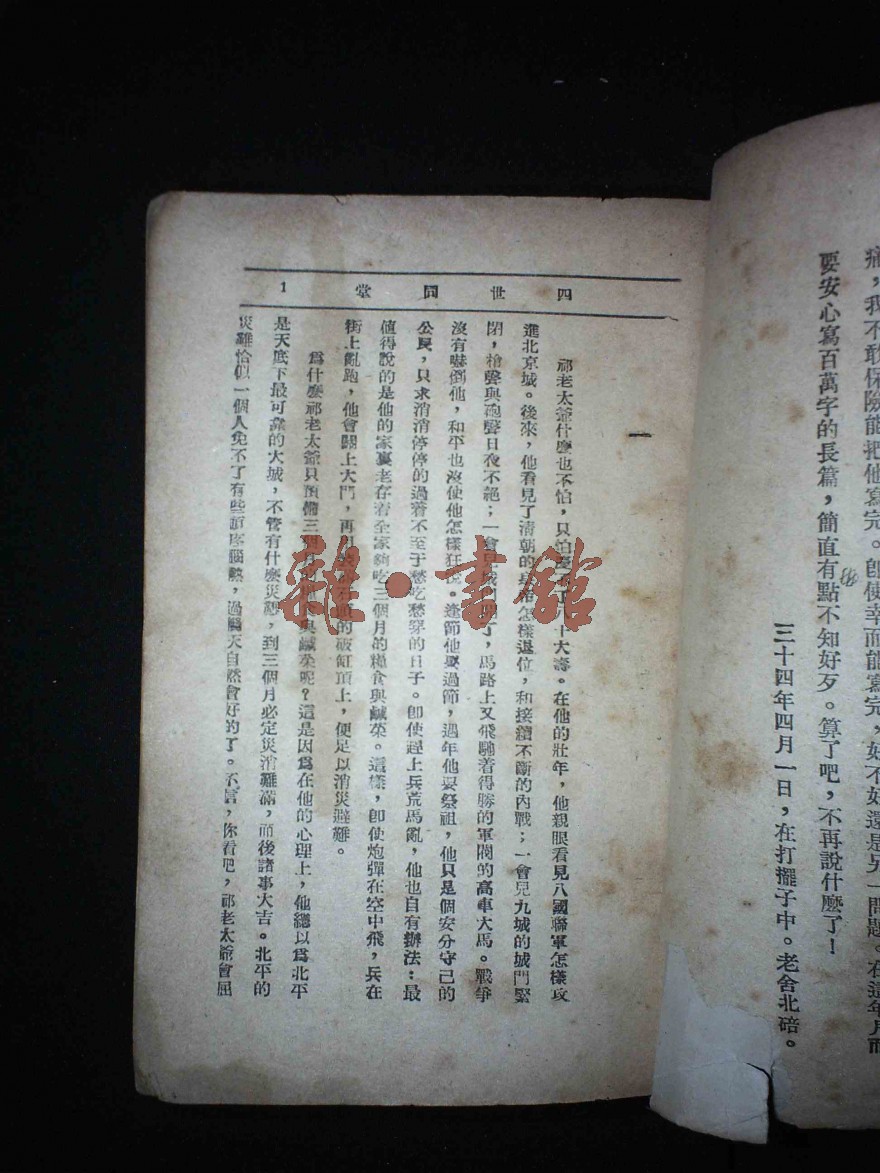 痛，我不敢保險能把他寫完。卽使幸而能寫完，好不好還是另一問題。在這年月而
要安心寫百萬字的長篇，簡直有點不知好歹。算了吧，不再說什麼了！
三十四年四月一日，在打擺子中。老舍北碚。
四世同堂 1
一
祁老太爺什麼也不怕，只怕十大壽。在他的壯年，他親眼看見八國聯軍怎樣攻
進北京城。後來，他看見了清朝的皇帝怎樣退位，和接續不斷的內戰；一會兒九城的城門緊
閉，槍聲與砲聲日夜不絕；一會兒城門開了，馬路上又飛馳着得勝的軍閥的高車大馬。戰爭
沒有嚇倒他，和平也沒使他怎樣狂悅。逢節他要過節，過年他要祭祖，他只是個安分守己的
公民，只求消消停停的過着不至于愁吃愁穿的日子。卽使趕上兵荒馬亂，他也自有辦法：最
值得說的是他的家裏老存着全家夠吃三個月的糧食與鹹菜。這樣，卽使炮彈在空中飛，兵在
街上亂跑，他會關上大門，再用的破缸頂上，便足以消災避難。
爲什麼祁老太爺只預備三個月的糧食與鹹菜呢？這是因爲在他的心理上，他總以爲北平
是天底下最可靠的大城，不管有什麼災難，到三個月必定災消難滿，而後諸事大吉。北平的
災難恰似一個人免不了有些頭疼腦熱，過幾天自然會好的了。不信，你看吧，祁老太爺會屈
雜·書館